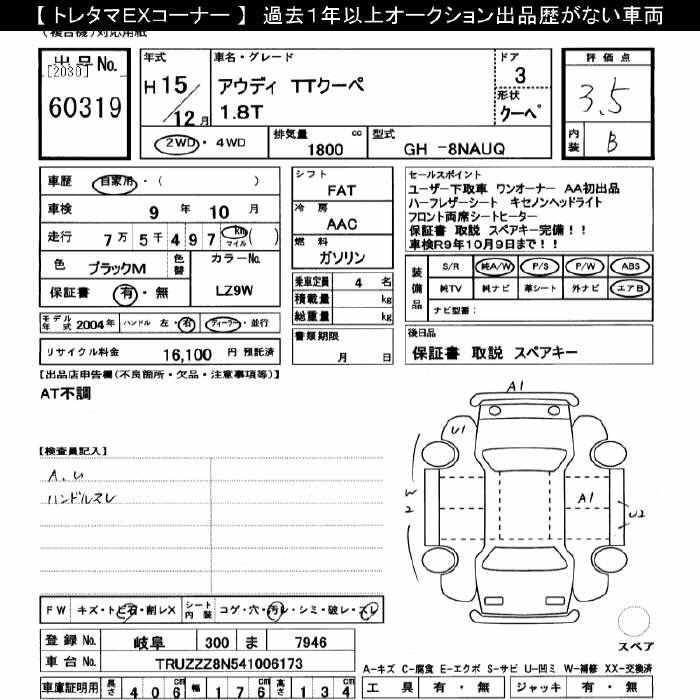 【 トレタマEXコーナー 】 過去１年以上オークション出品歴がない車両
(複合機)対応用紙
出品No.
[2030]
60319
年式
H 15/12月
車名・グレード
アウディ TTクーペ
1.8T
ドア
3
形状
クーペ
評価点
3.5
内装
B
2WD・4WD
排気量 cc
1800
型式
GH -8NAUQ
車歴 自家用・( )
車検 9年 10月
走行 7万5千497 km マイル ( )
色 ブラックM
色替
カラーNo.
LZ9W
保証書 有・無
モデル年式 2004年 ハンドル 左・右 ディーラー・並行
リサイクル料金 16,100 円 預託済
シフト
FAT
冷房
AAC
燃料
ガソリン
乗車定員 4 名
積載量 kg
総重量 kg
書類期限
月 日
セールスポイント
ユーザー下取車 ワンオーナー AA初出品
ハーフレザーシート キセノンヘッドライト
フロント両席シートヒーター
保証書 取説 スペアキー完備！！
車検R9年10月9日まで！！
装備品
S/R 純A/W P/S P/W ABS
純TV 純ナビ 革シート 外ナビ エアB
ナビ型番：
後日品
保証書 取説 スペアキー
【出品店申告欄(不良箇所・欠品・注意事項等)】
AT不調
【検査員記入】
A、U
ハンドルスレ
A1
U1
W2
A1
U2
スペア
FW キズ・トビ石・割レX
シート内装 コゲ・穴・汚レ・シミ・破レ・スレ
登録No. 岐阜 300 ま 7946
車台No. TRUZZZ8N541006173
車庫証明用 長さ 406cm 幅 176cm 高さ 134cm
A-キズ C-腐食 E-エクボ S-サビ U-凹ミ W-補修 XX-交換済
工具 有・無 ジャッキ 有・無